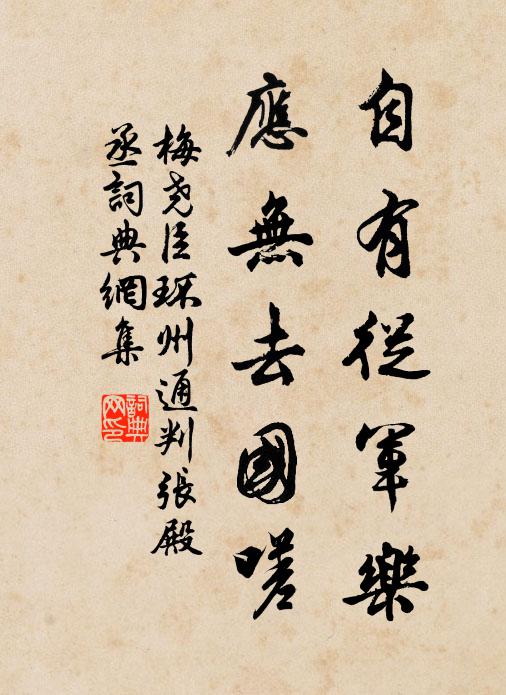 自有從軍樂
應無去國嗟
梅尧臣環州通判張殿
丞詞典網集
詞典
网印